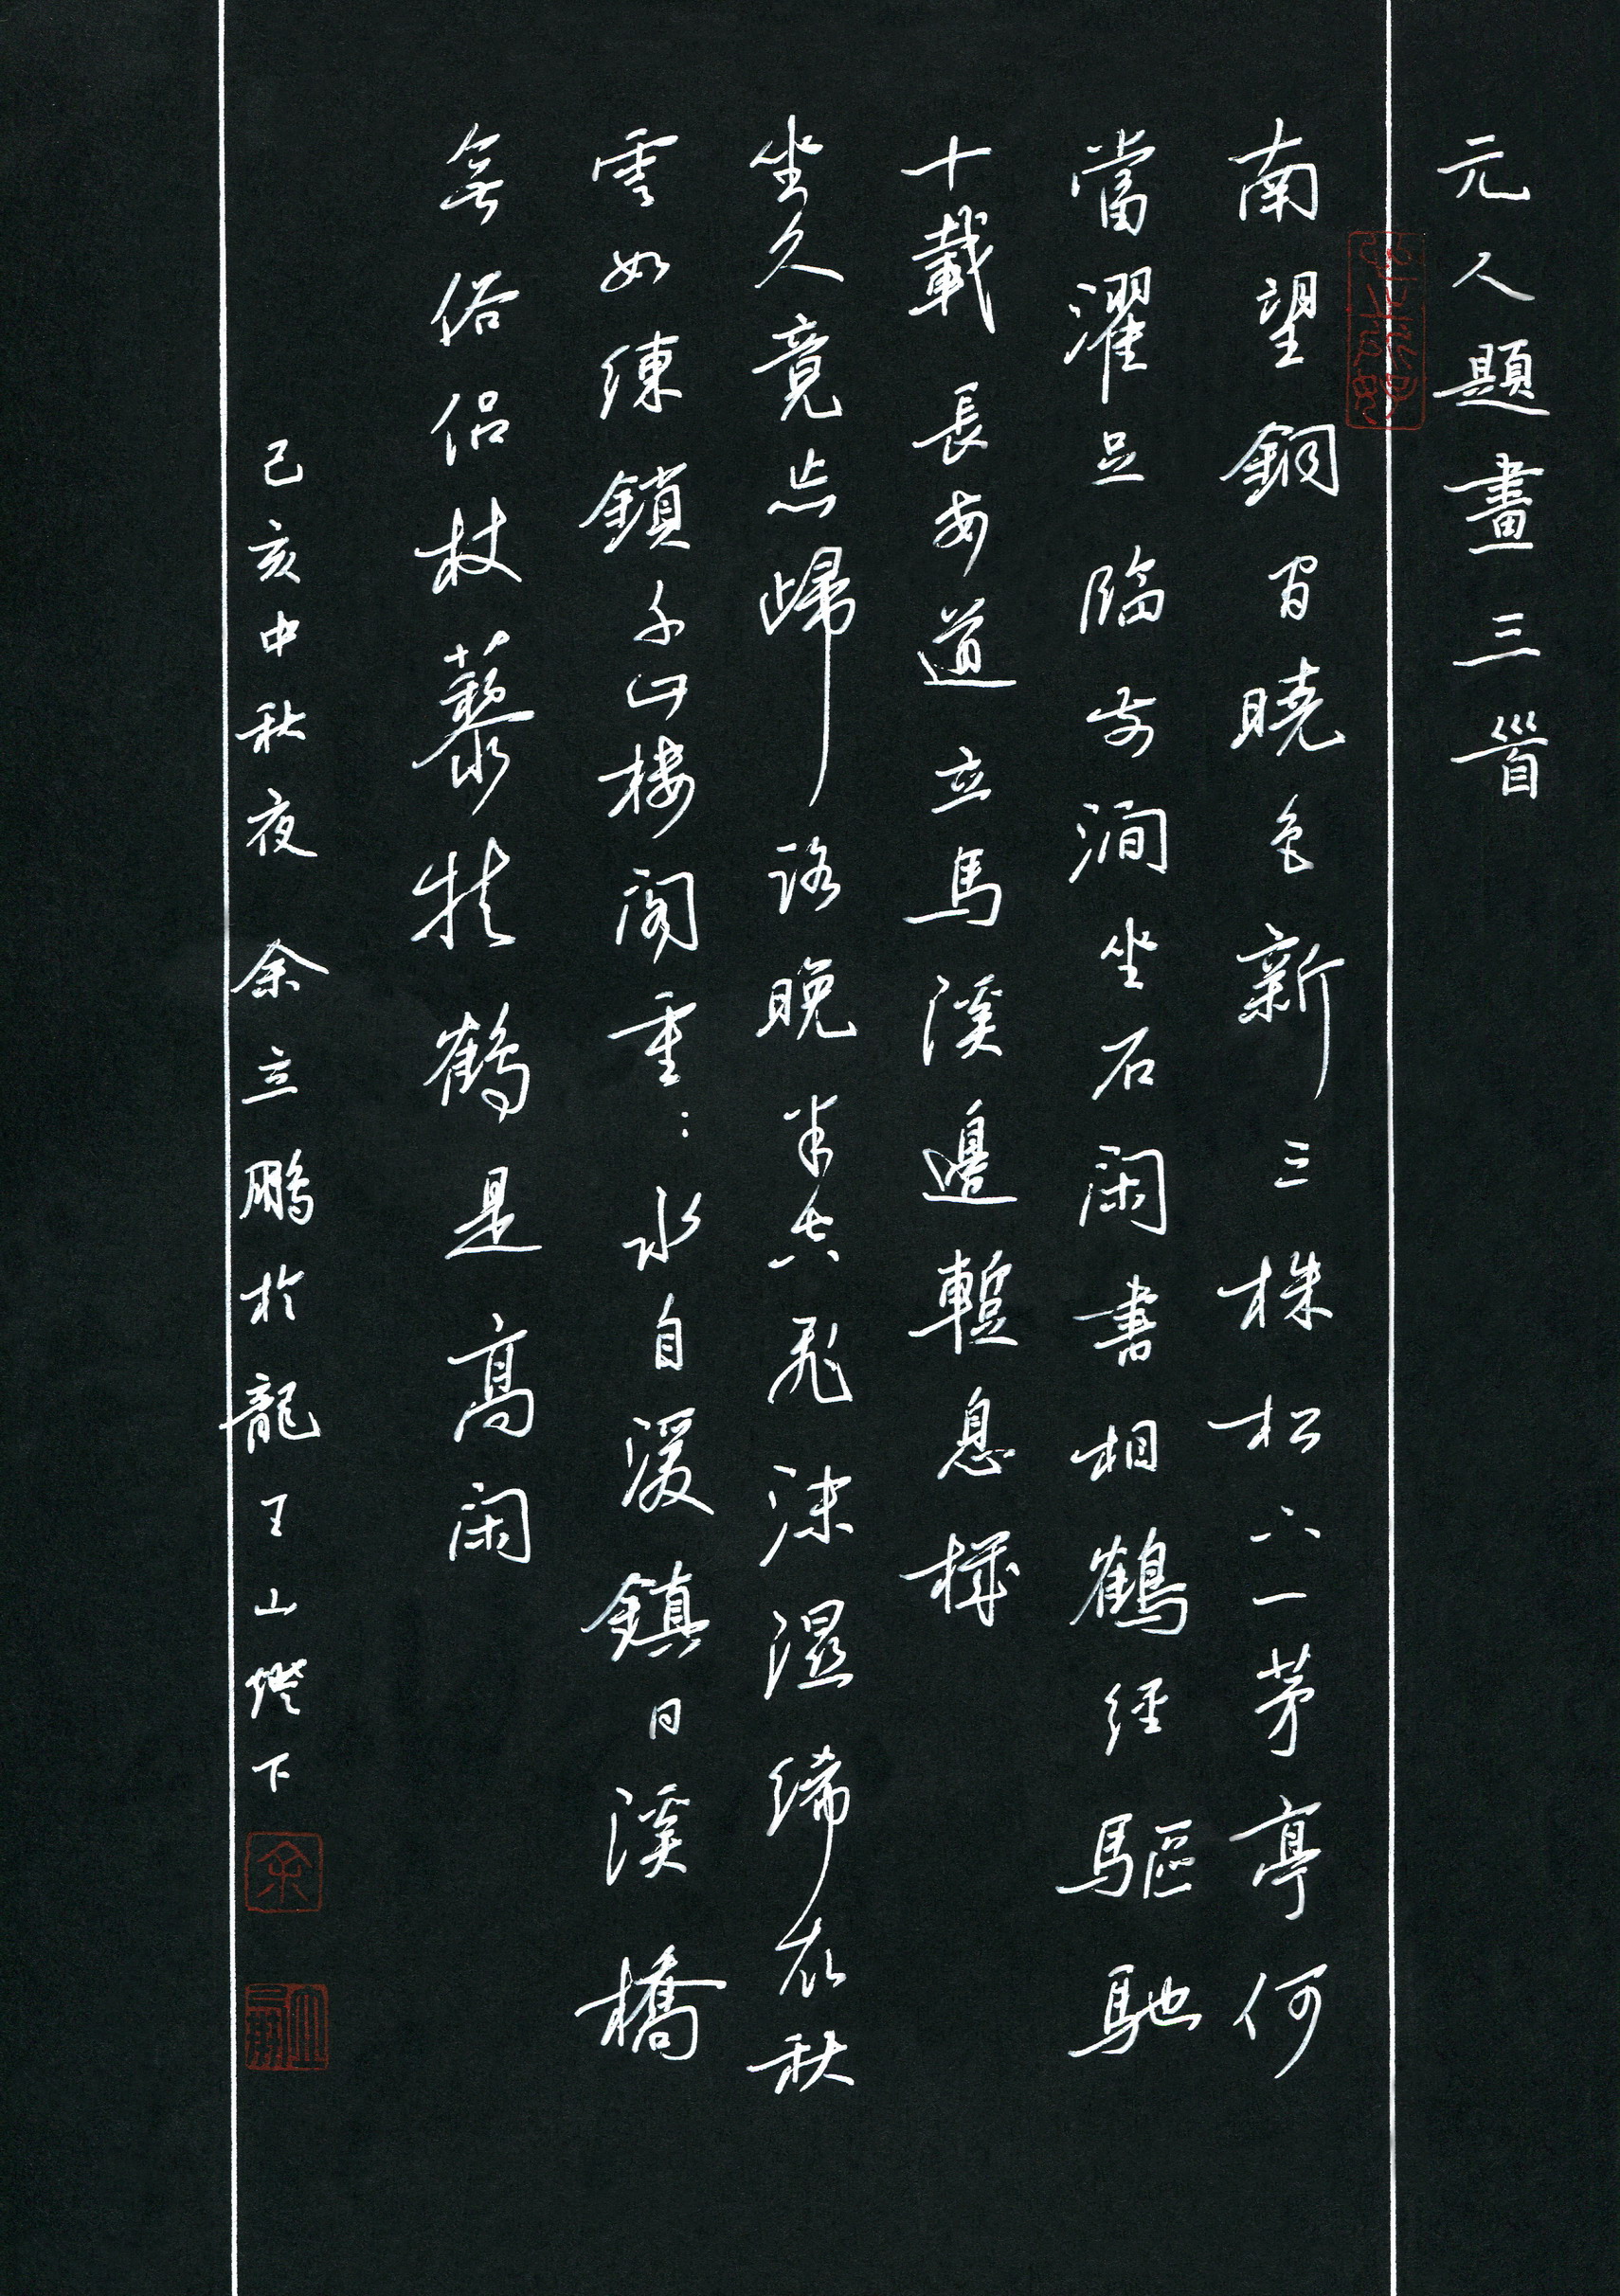 元人題畫三首
南望銅官曉色新三株松下一茅亭何
當濯足臨前澗坐石閑書相鶴經驅馳
十載長安道立馬溪邊暫息機
坐久竟忘歸路晚半空飛沫濕絺衣秋
雲如練鎖千山樓閣重:水自湲鎮日溪橋
無俗侶杖藜携鶴是高閑
己亥中秋夜余立鵬於龍王山燈下
余
立鵬